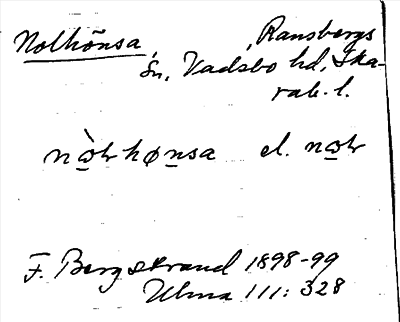 Nolhönsa, Ransbergs
Sn, Vadsbo hd, Ska-
rab. l.
nò̲lhøn̲sa el. no̲l
F. Bergstrand 1898-99
Ulma 111: 328